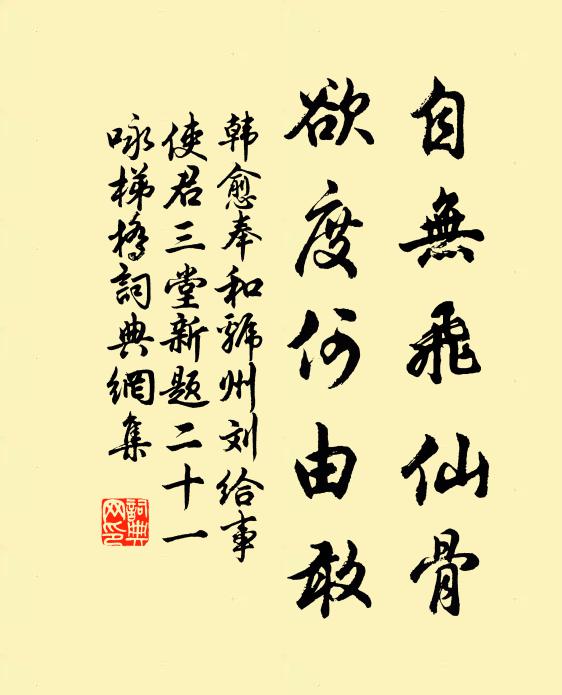 自無飛仙骨
欲度何由敢
韩愈奉和虢州刘给事
使君三堂新题二十一
咏梯橋詞典網集
詞典
网印